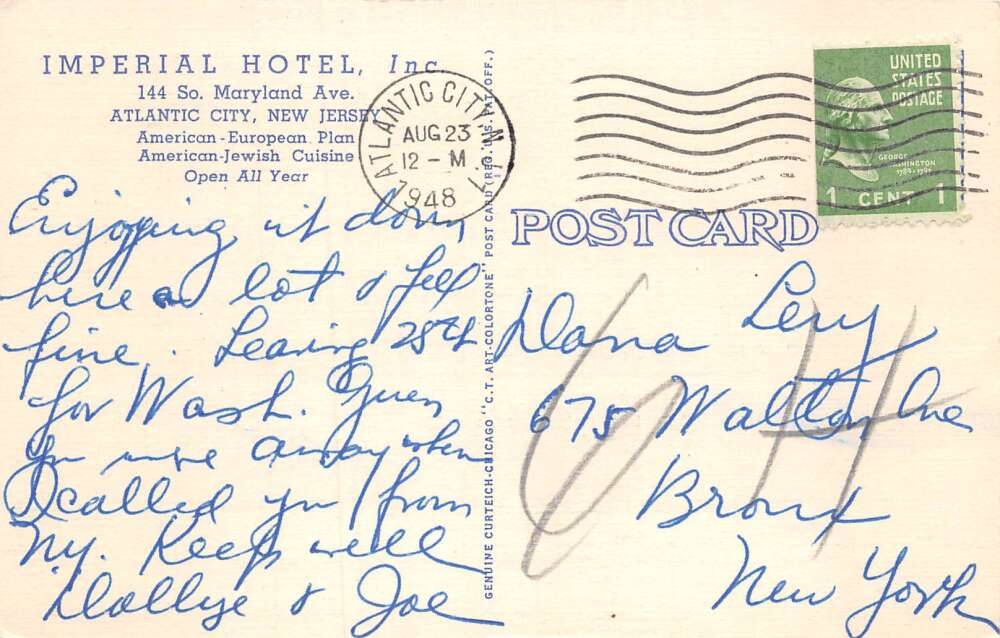 IMPERIAL HOTEL, Inc.
144 So. Maryland Ave.
ATLANTIC CITY, NEW JERSEY
American-European Plan
American-Jewish Cuisine
Open All Year
Enjoying it down
here a lot & feel
fine. Leaving 25th
for Wash. Guess
you were away when
I called you from
NY. Keep well
Dollye & Joe
GENUINE CURTEICH-CHICAGO "C. T. ART-COLORTONE" POST CARD (REG. U.S. PAT. OFF.)
ATLANTIC CITY, N.J.
AUG 23
12 - M
1948
UNITED
STATES
POSTAGE
GEORGE
WASHINGTON
1789-1797
1 CENT 1
POST CARD
Dana Levy
675 Walton Ave
Bronx
New York